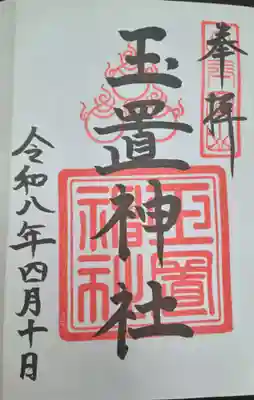 奉拝
玉置神社
令和八年四月十日
玉置
神社